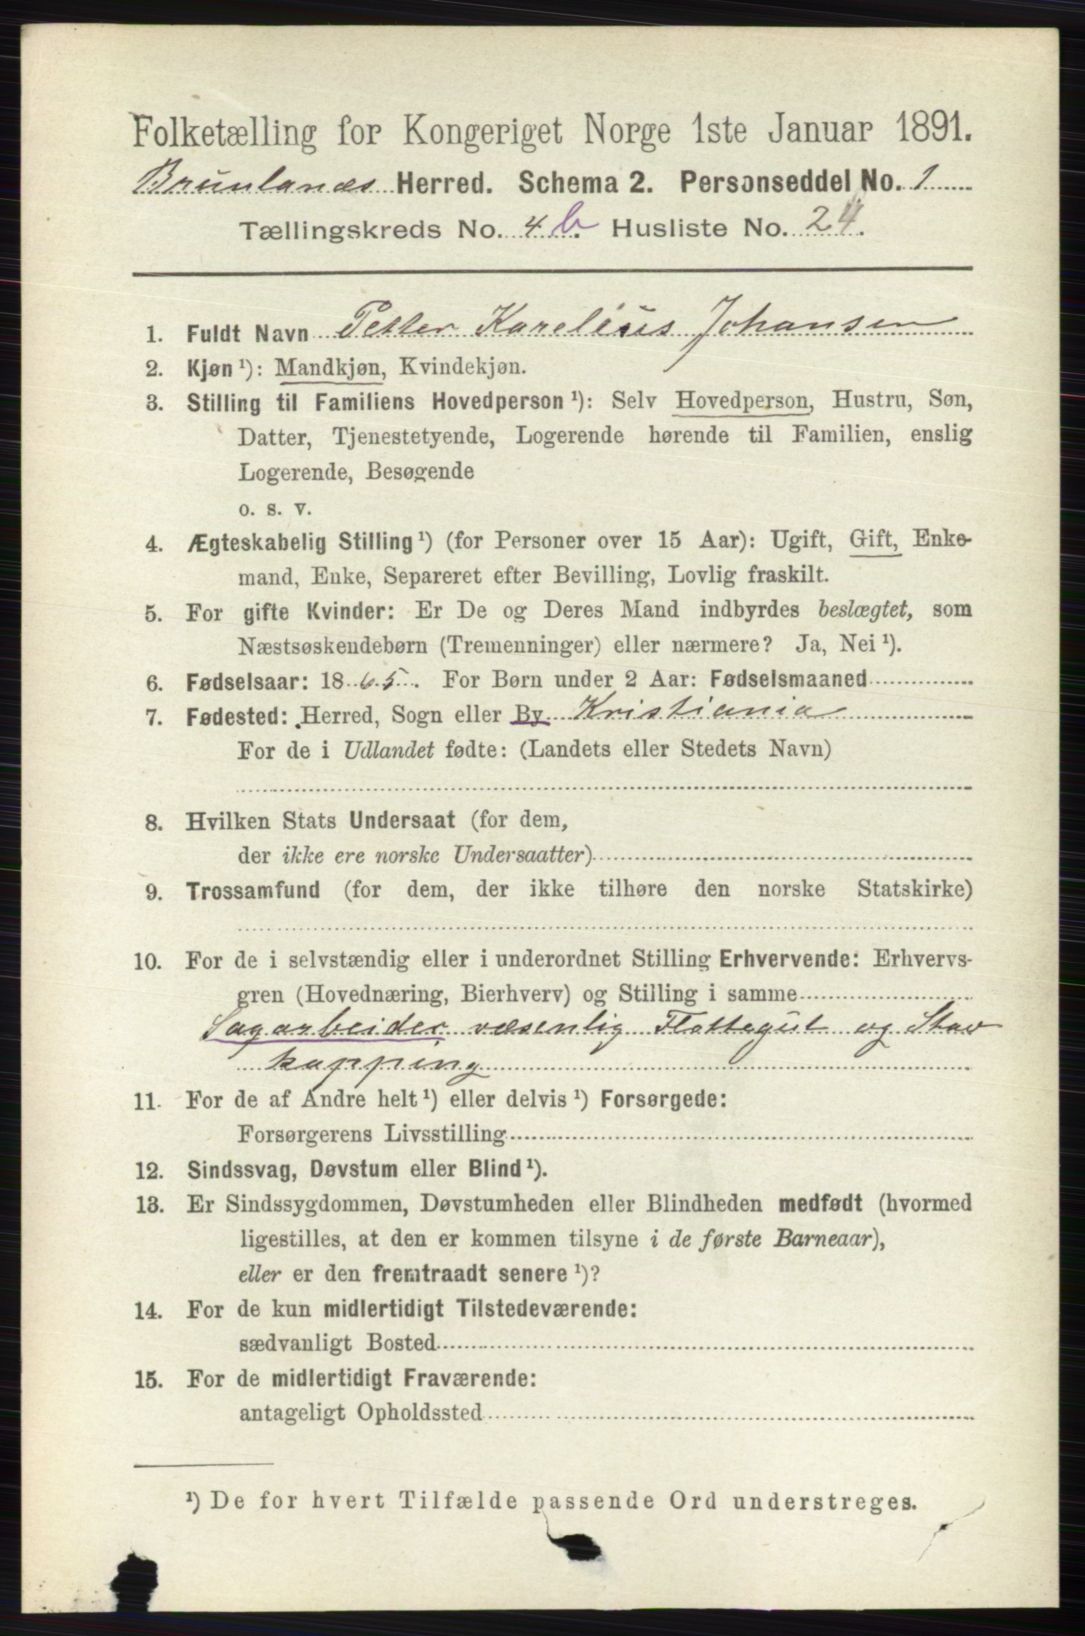 Folketælling for Kongeriget Norge 1ste Januar 1891.
Brunlanæs Herred. Schema 2. Personseddel No. 1
Tællingskreds No. 4 b. Husliste No. 24.
1. Fuldt Navn Petter Karelius Johansen
2. Kjøn ¹): Mandkjøn, Kvindekjøn.
3. Stilling til Familiens Hovedperson ¹): Selv Hovedperson, Hustru, Søn,
Datter, Tjenestetyende, Logerende hørende til Familien, enslig
Logerende, Besøgende
o. s. v.
4. Ægteskabelig Stilling ¹) (for Personer over 15 Aar): Ugift, Gift, Enke-
mand, Enke, Separeret efter Bevilling, Lovlig fraskilt.
5. For gifte Kvinder: Er De og Deres Mand indbyrdes beslægtet, som
Næstsøskendebørn (Tremenninger) eller nærmere? Ja, Nei ¹).
6. Fødselsaar: 1865. For Børn under 2 Aar: Fødselsmaaned
7. Fødested: Herred, Sogn eller By Kristiania
For de i Udlandet fødte: (Landets eller Stedets Navn)
8. Hvilken Stats Undersaat (for dem,
der ikke ere norske Undersaatter)
9. Trossamfund (for dem, der ikke tilhøre den norske Statskirke)
10. For de i selvstændig eller i underordnet Stilling Erhvervende: Erhvervs-
gren (Hovednæring, Bierhverv) og Stilling i samme
Sagarbeider væsenlig og Stav
kapping
11. For de af Andre helt ¹) eller delvis ¹) Forsørgede:
Forsørgerens Livsstilling
12. Sindssvag, Døvstum eller Blind ¹).
13. Er Sindssygdommen, Døvstumheden eller Blindheden medfødt (hvormed
ligestilles, at den er kommen tilsyne i de første Barneaar),
eller er den fremtraadt senere ¹)?
14. For de kun midlertidigt Tilstedeværende:
sædvanligt Bosted
15. For de midlertidigt Fraværende:
antageligt Opholdssted
¹) De for hvert Tilfælde passende Ord understreges.